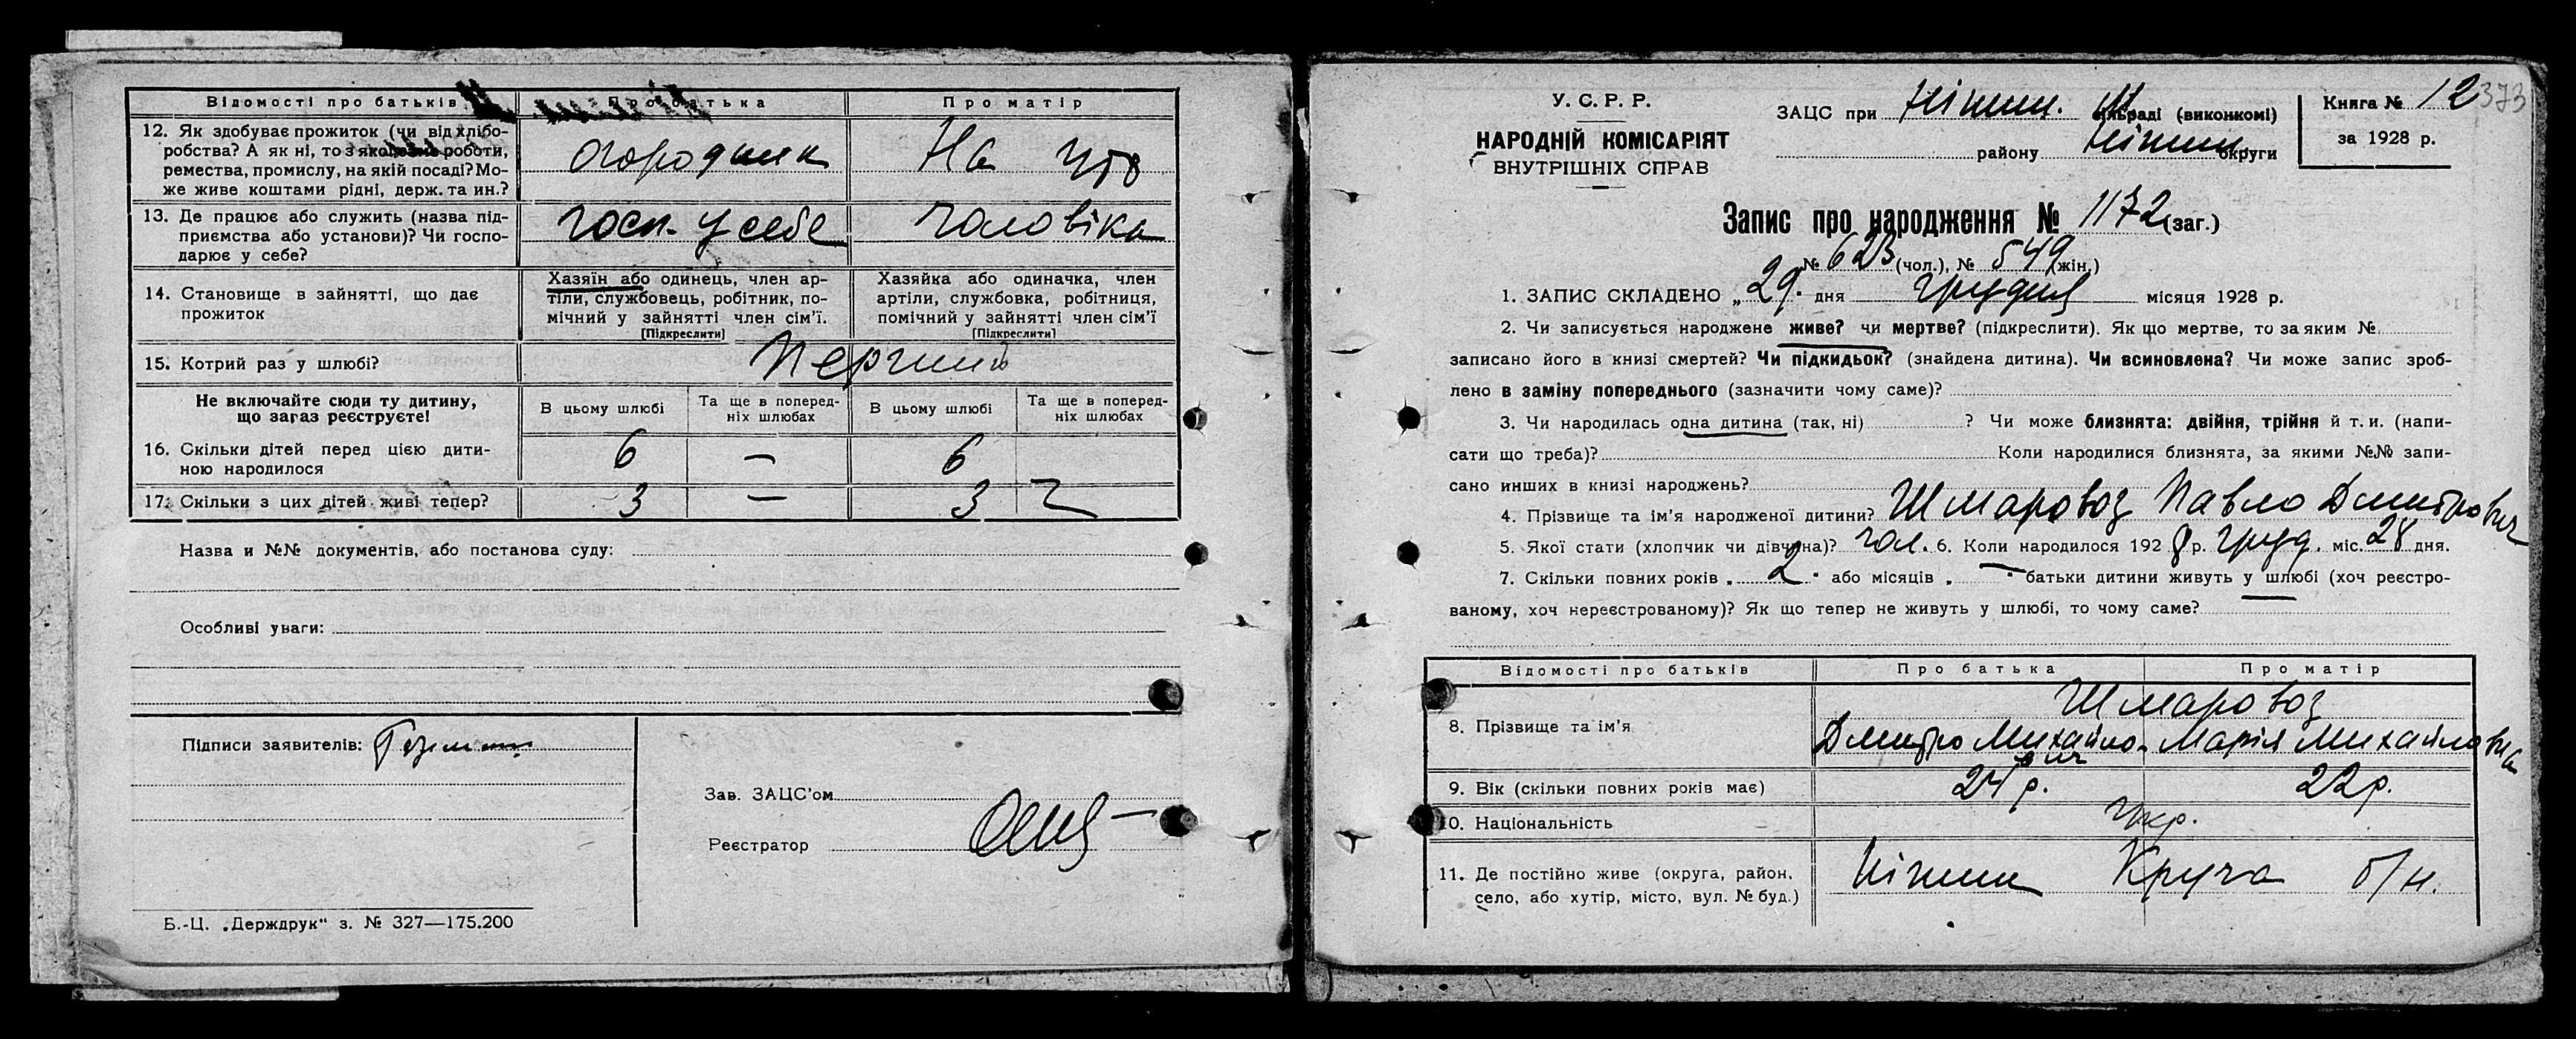 Відомості про батьків
Про батька
Про матір
12. Як здобуває прожиток (чи від хлібо-
робства? А як ні, то з якої роботи,
ремества, промислу, на якій посаді? Мо-
же живе коштами рідні, держ. та ин.?
огородник
На утр
13. Де працює або служить (назва під-
приємства або установи)? Чи госпо-
дарює у себе?
госп. у себе
чоловіка
14. Становище в зайнятті, що дає
прожиток
Хазяїн або одинець, член ар-
тіли, службовець, робітник, по-
мічний у зайнятті член сім'ї.
[Підкреслити]
Хазяйка або одиначка, член
артіли, службовка, робітниця,
помічний у зайнятті член сім'ї
[Підкреслити]
15. Котрий раз у шлюбі?
Перший
Не включайте сюди ту дитину,
що загаз реєструєте!
В цьому шлюбі
Та ще в поперед-
ніх шлюбах
В цьому шлюбі
Та ще в поперед-
ніх шлюбах
16. Скільки дітей перед цією дити-
ною народилося
6 — 6
17. Скільки з цих дітей живі тепер?
3 — 3
Назва и №№ документів, або постанова суду:
Особливі уваги:
Підписи заявителів:
Зав. ЗАЦС'ом
Реєстратор
Б.-Ц. „Держдрук" з. № 327—175.200
У. С. Р. Р.
НАРОДНІЙ КОМІСАРІЯТ
ВНУТРІШНІХ СПРАВ
ЗАЦС при Ніжин. раді (виконкомі)
району Ніжин. округи
Книга № 12
373
за 1928 р.
Запис про народження № 1172 (заг.)
№ 623 (чол.), № 549 (жін.)
1. ЗАПИС СКЛАДЕНО „29" дня грудня місяця 1928 р.
2. Чи записується народжене живе? чи мертве? (підкреслити). Як що мертве, то за яким №
записано його в книзі смертей? Чи підкидьок? (знайдена дитина). Чи всиновлена? Чи може запис зроб-
лено в заміну попереднього (зазначити чому саме)?
3. Чи народилась одна дитина (так, ні) ? Чи може близнята: двійня, трійня й т. и. (напи-
сати що треба)? Коли народилися близнята, за якими №№ запи-
сано инших в книзі народжень?
4. Прізвище та ім'я народженої дитини? Шмаровоз Павло Дмитрович
5. Якої стати (хлопчик чи дівчина)? чол. 6. Коли народилося 1928 р. груд. міс. 28 дня.
7. Скільки повних років „2" або місяців „—" батьки дитини живуть у шлюбі (хоч реєстро-
ваному, хоч нереєстрованому)? Як що тепер не живуть у шлюбі, то чому саме?
Відомості про батьків
Про батька
Про матір
8. Прізвище та ім'я
Шмаровоз
Дмитро Михайлович
Марія Михайловна
9. Вік (скільки повних років має)
24 р.
22 р.
10. Національність
Укр.
11. Де постійно живе (округа, район,
село, або хутір, місто, вул. № буд.)
Ніжин Круча б/н.